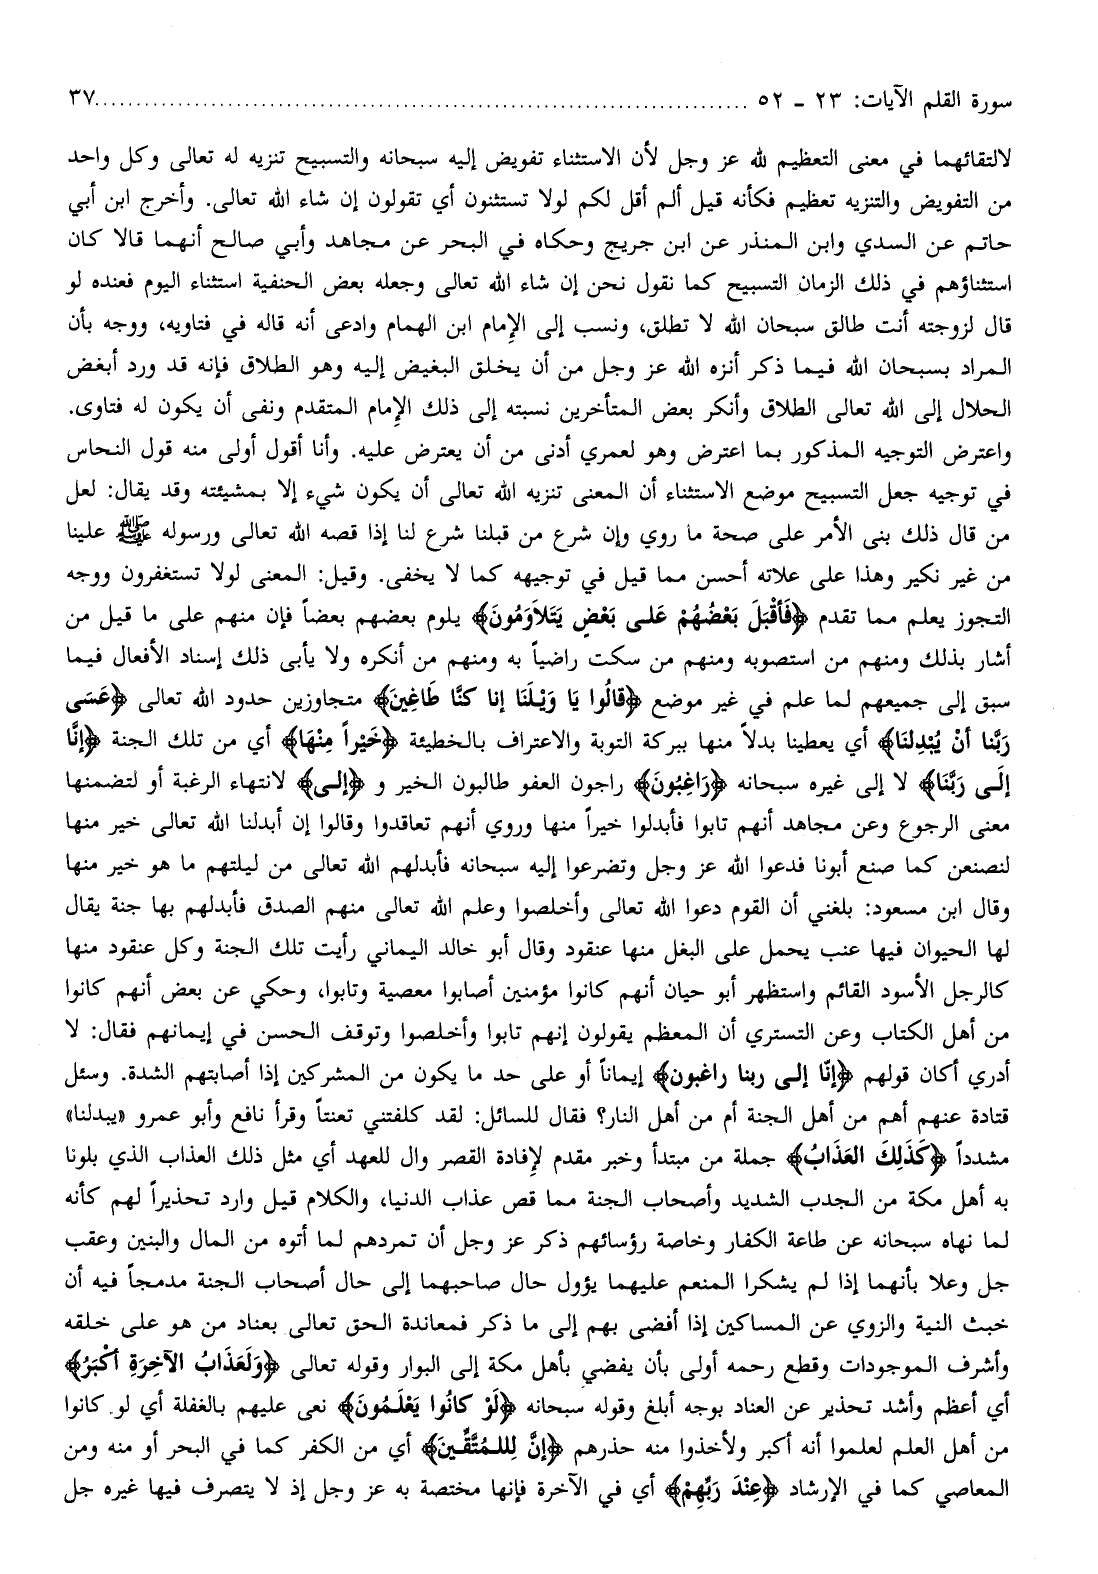 سورة القلم الآيات: ٢٣ ـ ٥٢ ........................................................................... ٣٧
لالتقائهما في معنى التعظيم لله عز وجل لأن الاستثناء تفويض إليه سبحانه والتسبيح تنزيه له تعالى وكل واحد
من التفويض والتنزيه تعظيم فكأنه قيل ألم أقل لكم لولا تستثنون أي تقولون إن شاء الله تعالى. وأخرج ابن أبي
حاتم عن السدي وابن المنذر عن ابن جريج وحكاه في البحر عن مجاهد وأبي صالح أنهما قالا كان
استثناؤهم في ذلك الزمان التسبيح كما نقول نحن إن شاء الله تعالى وجعله بعض الحنفية استثناء اليوم فعنده لو
قال لزوجته أنت طالق سبحان الله لا تطلق، ونسب إلى الإمام ابن الهمام وادعى أنه قاله في فتاويه، ووجه بأن
المراد بسبحان الله فيما ذكر أنزه الله عز وجل من أن يخلق البغيض إليه وهو الطلاق فإنه قد ورد أبغض
الحلال إلى الله تعالى الطلاق وأنكر بعض المتأخرين نسبته إلى ذلك الإمام المتقدم ونفى أن يكون له فتاوى.
واعترض التوجيه المذكور بما اعترض وهو لعمري أدنى من أن يعترض عليه. وأنا أقول أولى منه قول النحاس
في توجيه جعل التسبيح موضع الاستثناء أن المعنى تنزيه الله تعالى أن يكون شيء إلا بمشيئته وقد يقال: لعل
من قال ذلك بنى الأمر على صحة ما روي وإن شرع من قبلنا شرع لنا إذا قصه الله تعالى ورسوله ﷺ علينا
من غير نكير وهذا على علاته أحسن مما قيل في توجيهه كما لا يخفى. وقيل: المعنى لولا تستغفرون ووجه
التجوز يعلم مما تقدم ﴿فَأَقْبَلَ بَعْضُهُمْ عَلى بَعْضٍ يَتَلاَوَمُونَ﴾ يلوم بعضهم بعضاً فإن منهم على ما قيل من
أشار بذلك ومنهم من استصوبه ومنهم من سكت راضياً به ومنهم من أنكره ولا يأبى ذلك إسناد الأفعال فيما
سبق إلى جميعهم لما علم في غير موضع ﴿قالُوا يَا وَيْلَنَا إنا كنَّا طَاغِينَ﴾ متجاوزين حدود الله تعالى ﴿عَسَى
رَبَّنا أنْ يُبْدِلنَا﴾ أي يعطينا بدلاً منها ببركة التوبة والاعتراف بالخطيئة ﴿خَيْراً مِنْهَا﴾ أي من تلك الجنة ﴿إنَّا
إلَى رَبَّنَا﴾ لا إلى غيره سبحانه ﴿رَاغِبُونَ﴾ راجون العفو طالبون الخير و ﴿إلى﴾ لانتهاء الرغبة أو لتضمنها
معنى الرجوع وعن مجاهد أنهم تابوا فأبدلوا خيراً منها وروي أنهم تعاقدوا وقالوا إن أبدلنا الله تعالى خير منها
لنصنعن كما صنع أبونا فدعوا الله عز وجل وتضرعوا إليه سبحانه فأبدلهم الله تعالى من ليلتهم ما هو خير منها
وقال ابن مسعود: بلغني أن القوم دعوا الله تعالى وأخلصوا وعلم الله تعالى منهم الصدق فأبدلهم بها جنة يقال
لها الحيوان فيها عنب يحمل على البغل منها عنقود وقال أبو خالد اليماني رأيت تلك الجنة وكل عنقود منها
كالرجل الأسود القائم واستظهر أبو حيان أنهم كانوا مؤمنين أصابوا معصية وتابوا، وحكي عن بعض أنهم كانوا
من أهل الكتاب وعن التستري أن المعظم يقولون إنهم تابوا وأخلصوا وتوقف الحسن في إيمانهم فقال: لا
أدري أكان قولهم ﴿إنّا إلى ربنا راغبون﴾ إيماناً أو على حد ما يكون من المشركين إذا أصابتهم الشدة. وسئل
قتادة عنهم أهم من أهل الجنة أم من أهل النار؟ فقال للسائل: لقد كلفتني تعنتاً وقرأ نافع وأبو عمرو «يبدلنا»
مشدداً ﴿كَذَلِكَ العَذَابُ﴾ جملة من مبتدأ وخبر مقدم لإفادة القصر وال للعهد أي مثل ذلك العذاب الذي بلونا
به أهل مكة من الجدب الشديد وأصحاب الجنة مما قص عذاب الدنيا، والكلام قيل وارد تحذيراً لهم كأنه
لما نهاه سبحانه عن طاعة الكفار وخاصة رؤسائهم ذكر عز وجل أن تمردهم لما أتوه من المال والبنين وعقب
جل وعلا بأنهما إذا لم يشكرا المنعم عليهما يؤول حال صاحبهما إلى حال أصحاب الجنة مدمجاً فيه أن
خبث النية والزوي عن المساكين إذا أفضى بهم إلى ما ذكر فمعاندة الحق تعالى بعناد من هو على خلقه
وأشرف الموجودات وقطع رحمه أولى بأن يفضي بأهل مكة إلى البوار وقوله تعالى ﴿وَلَعَذَابُ الآخِرَةِ أكْبَرُ﴾
أي أعظم وأشد تحذير عن العناد بوجه أبلغ وقوله سبحانه ﴿لَوْ كانُوا يَعْلَمُونَ﴾ نعى عليهم بالغفلة أي لو كانوا
من أهل العلم لعلموا أنه أكبر ولأخذوا منه حذرهم ﴿إنَّ لِلمُتَّقِينَ﴾ أي من الكفر كما في البحر أو منه ومن
المعاصي كما في الإرشاد ﴿عِنْدَ رَبِّهِمْ﴾ أي في الآخرة فإنها مختصة به عز وجل إذ لا يتصرف فيها غيره جل